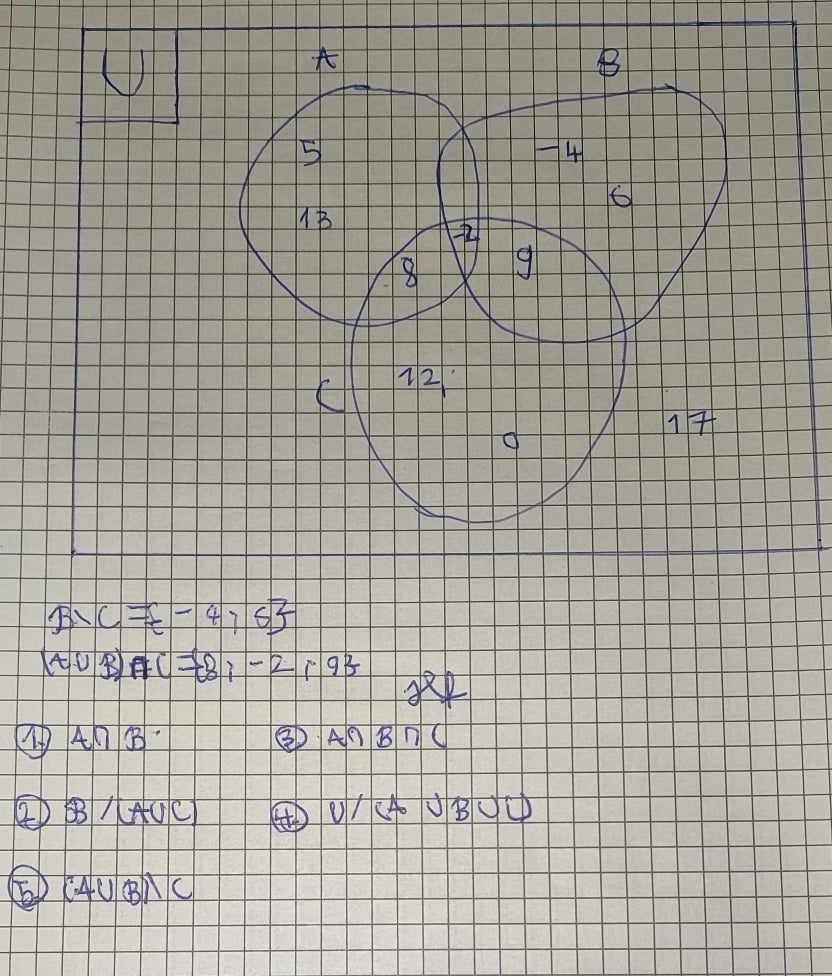 U
A B
5 -4
13 6
-2
8 9
12,
C 17
0
B\C = {-4; 6}
(A∪B)∩C = {8; -2; 9}
① A∩B ③ A∩B∩C
② B/(A∪C) ④ U/(A∪B∪C)
⑤ (A∪B)\C